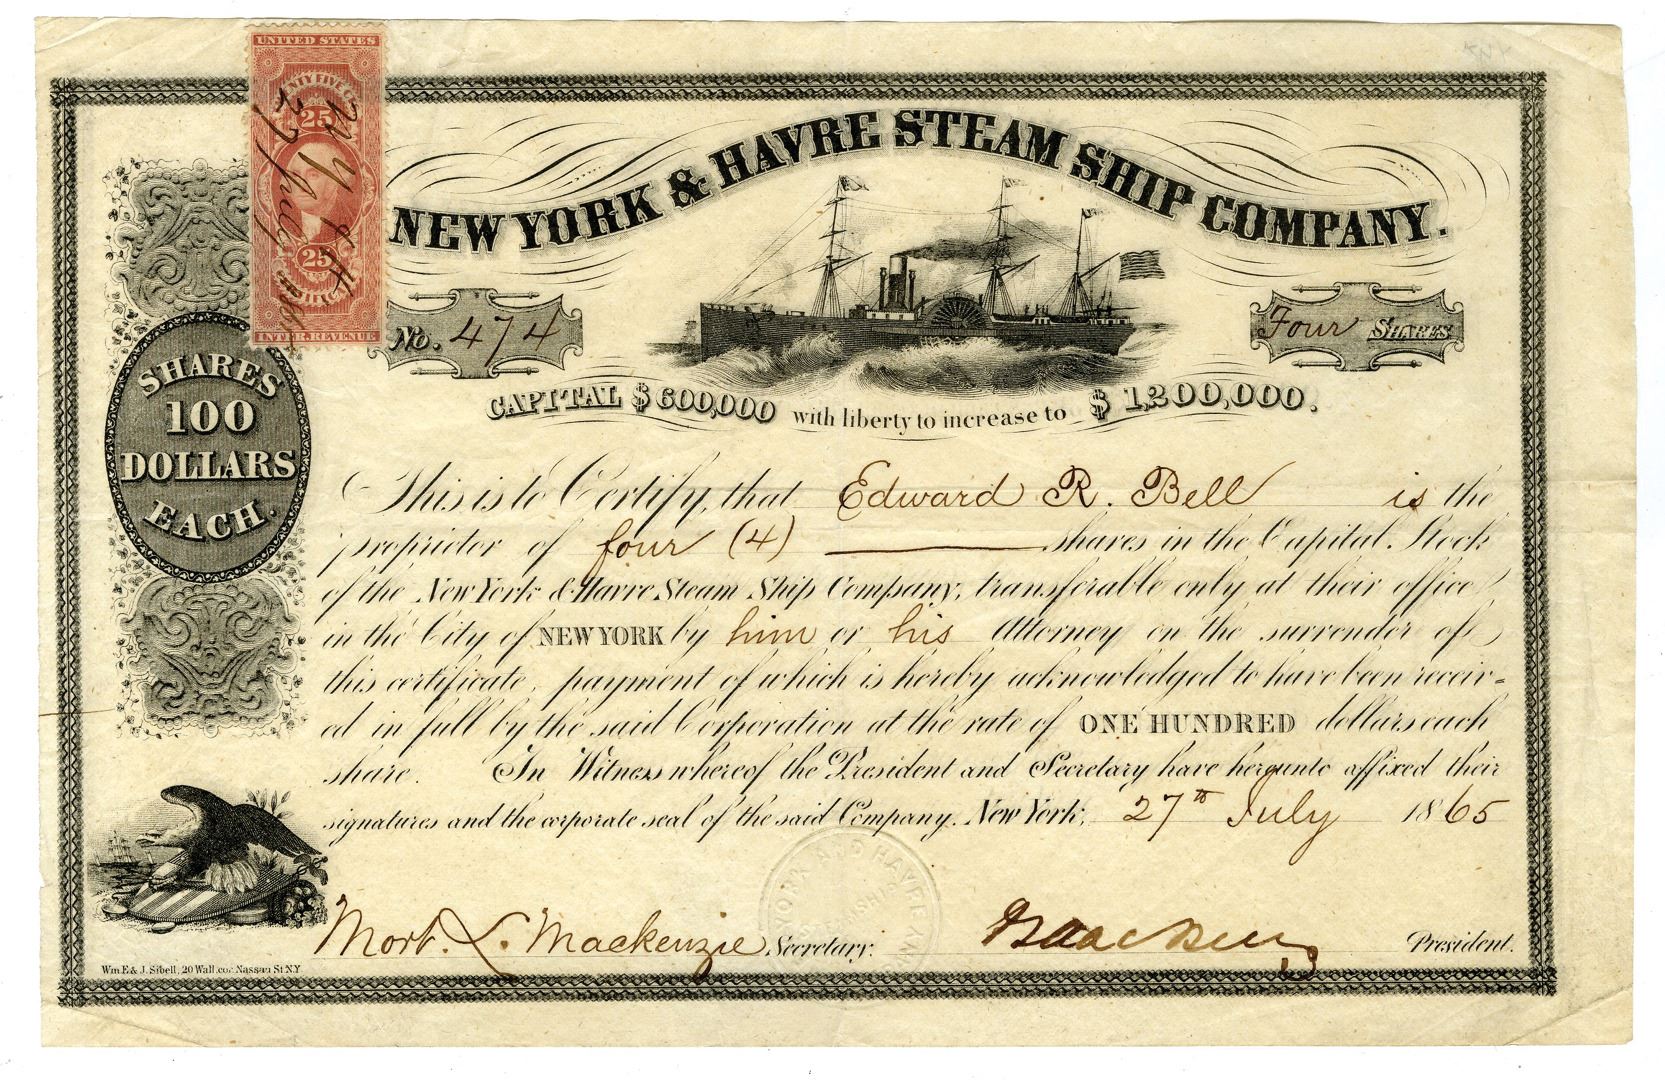 UNITED STATES
25
25
27 July
INTER. REVENUE
NEW YORK & HAVRE STEAM SHIP COMPANY.
No. 474
Four SHARES
CAPITAL $600,000 with liberty to increase to $1,200,000.
SHARES
100
DOLLARS
EACH.
This is to Certify, that Edward R. Bell is the
proprietor of four (4) shares in the Capital Stock
of the New York & Havre Steam Ship Company, transferable only at their office
in the City of NEW YORK by him or his Attorney on the surrender of
this certificate, payment of which is hereby acknowledged to have been receiv=
ed in full by the said Corporation at the rate of ONE HUNDRED dollars each
share. In Witness whereof the President and Secretary have hereunto affixed their
signatures and the corporate seal of the said Company. New York, 27th July 1865
Mort. L. Mackenzie Secretary.
Isaac Bell President.
Wm F. & J. Sibell, 20 Wall cor. Nassau St N.Y